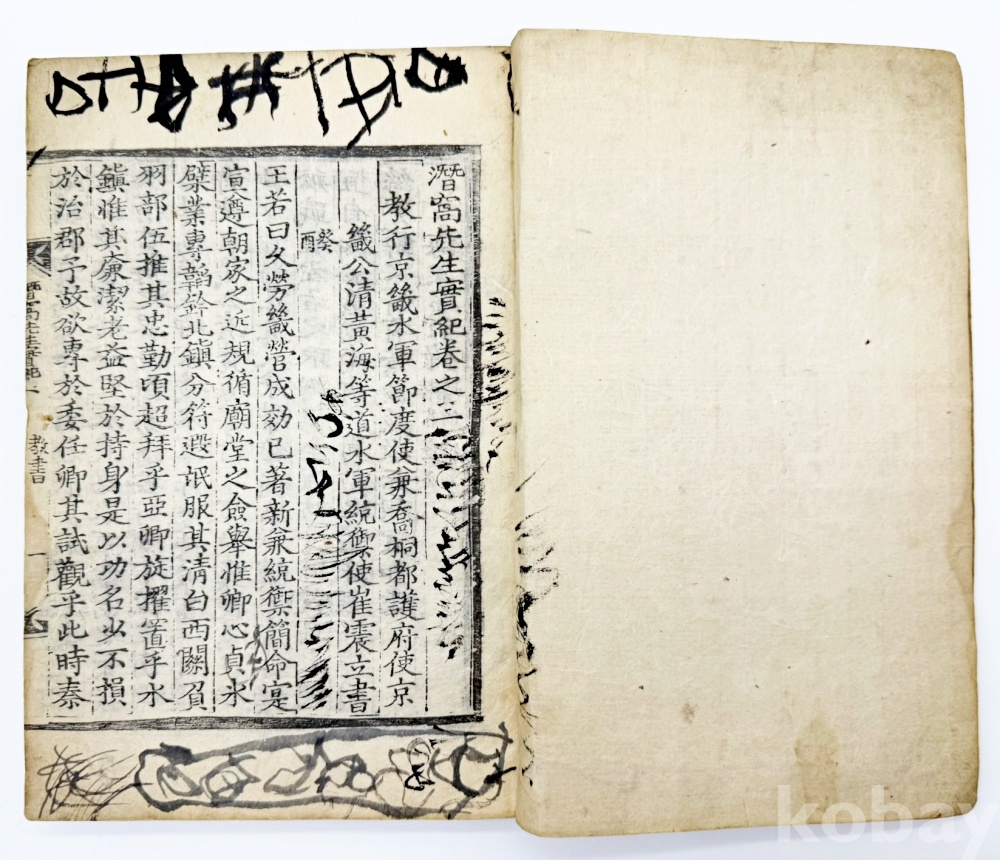 潛窩先生實紀卷之二
教行京畿水軍節度使兼喬桐都護府使京
畿公清黃海等道水軍統禦使崔震立書
癸酉
王若曰久勞畿營成効已著新兼統禦簡命寔
宣遵朝家之近規循廟堂之僉擧惟卿心貞氷
檗業專韜鈐北鎭分符遐氓服其清白西關負
羽部伍推其忠勤頃超拜乎亞卿旋擢置乎水
鎭惟其廉潔老益堅於持身是以功名少不損
於治郡予故欲專於委任卿其試觀乎此時秦
教書
一
kobay